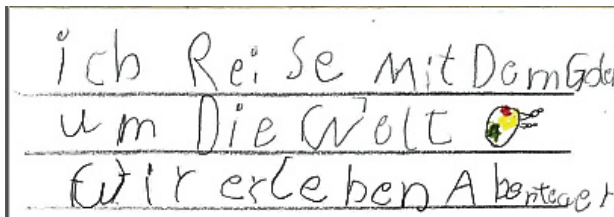 ich Reise Mit Dem
um Die Welt
Wir erleben Abenteuer